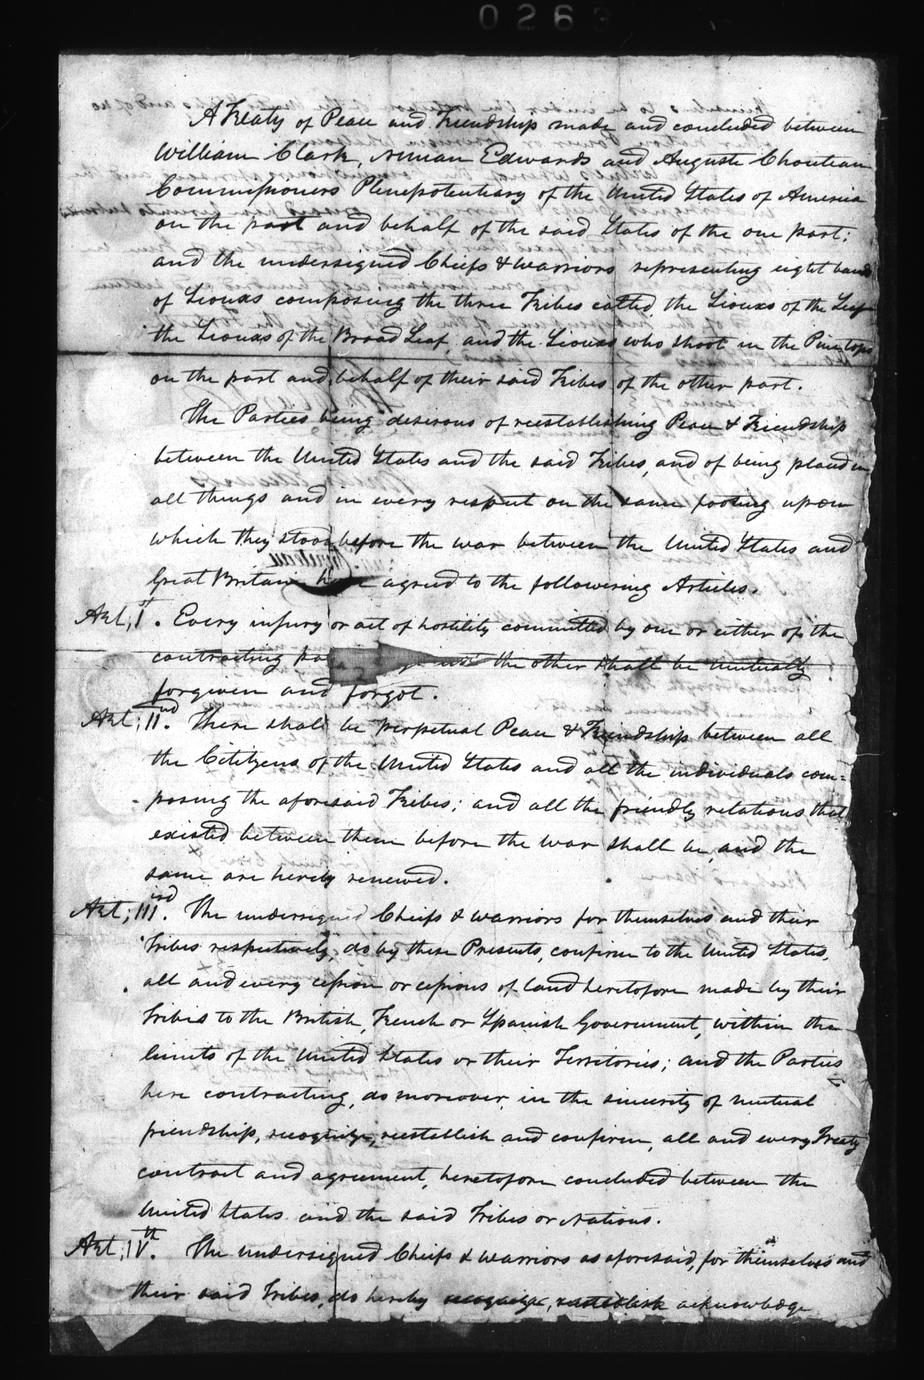 0263
A Treaty of Peace and Friendship made and concluded between
William Clark, Ninian Edwards and Auguste Chouteau
Commissioners Plenepotentiary of the United States of America
on the part and behalf of the said States of the one part;
and the undersigned Chiefs & warriors representing eight bands
of Siouxs composing the three Tribes called, the Siouxs of the Leaf
the Siouxs of the Broad Leaf, and the Siouxs who shoot in the Pine tops
on the part and behalf of their said Tribes of the other part.
The Parties being desirous of reestablishing Peace & Friendship
between the United States and the said Tribes, and of being placed in
all things and in every respect on the same footing upon
which they stood before the war between the United States and
Great Britain have agreed to the following Articles.
Art; Ist. Every injury or act of hostility committed by one or either of the
contracting against the other shall be mutually
forgiven and forgot.
Art; IInd. There shall be perpetual Peace & Friendship between all
the Citizens of the United States and all the individuals com=
posing the aforesaid Tribes; and all the friendly relations that
existed between them before the war shall be, and the
same are hereby renewed.
Art; IIIrd. The undersigned Chiefs & warriors for themselves and their
Tribes respectively, do by these Presents, confirm to the United States,
all and every cession or cessions of land heretofore made by their
Tribes to the British, French or Spanish Government, within the
limits of the United States or their Territories; and the Parties
here contracting, do moreover, in the sincerity of mutual
friendship, recognize, reestablish and confirm, all and every Treaty
contract and agreement, heretofore concluded between the
United States and the said Tribes or Nations.
Art; IVth. The undersigned Chiefs & warriors as aforesaid, for themselves and
their said Tribes, do hereby recognize, reestablish acknowledge